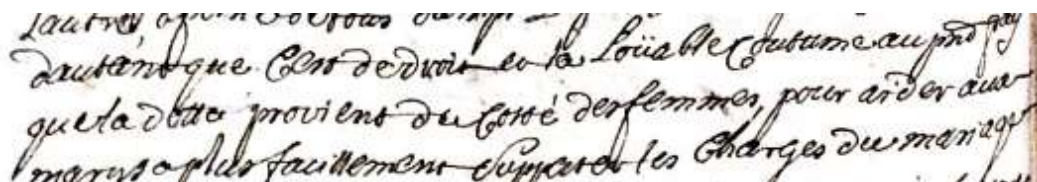 dautant que Cest de droit et la Loüable Coutume au pnt pay
que la dotte provient du Costé des femmes, pour aider aux
marys a plus facillement Supporter les Charges du mariage